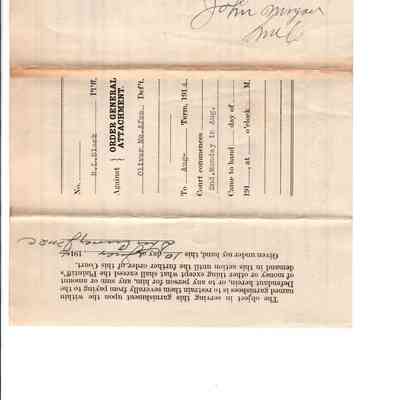 John
No.
R.L.Black Pltff.
Against } ORDER GENERAL
ATTACHMENT.
Oliver Deft.
To Aug. Term, 191
Court commences
2nd.Monday in Aug.
Came to hand day of
191 , at o'clock M.
The object in serving this garnishment upon the within
named garnishees is to restrain them severally from paying to the
Defendant herein, or to any person for him, any sum or amount
of money or other thing except what shall exceed the Plaintiff's
demand in this action until the further order of this Court.
Given under my hand, this day of 191